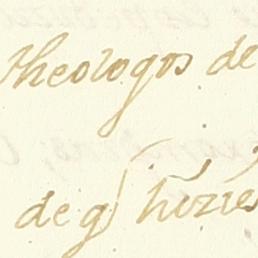 theologos de
de q hizies